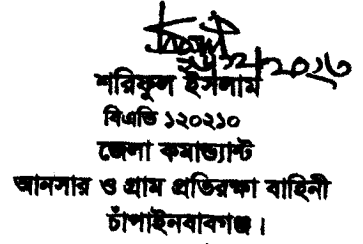 শরিফুল ইসলাম
বিএভি ১২০২১০
জেলা কমান্ড্যান্ট
আনসার ও গ্রাম প্রতিরক্ষা বাহিনী
চাঁপাইনবাবগঞ্জ।